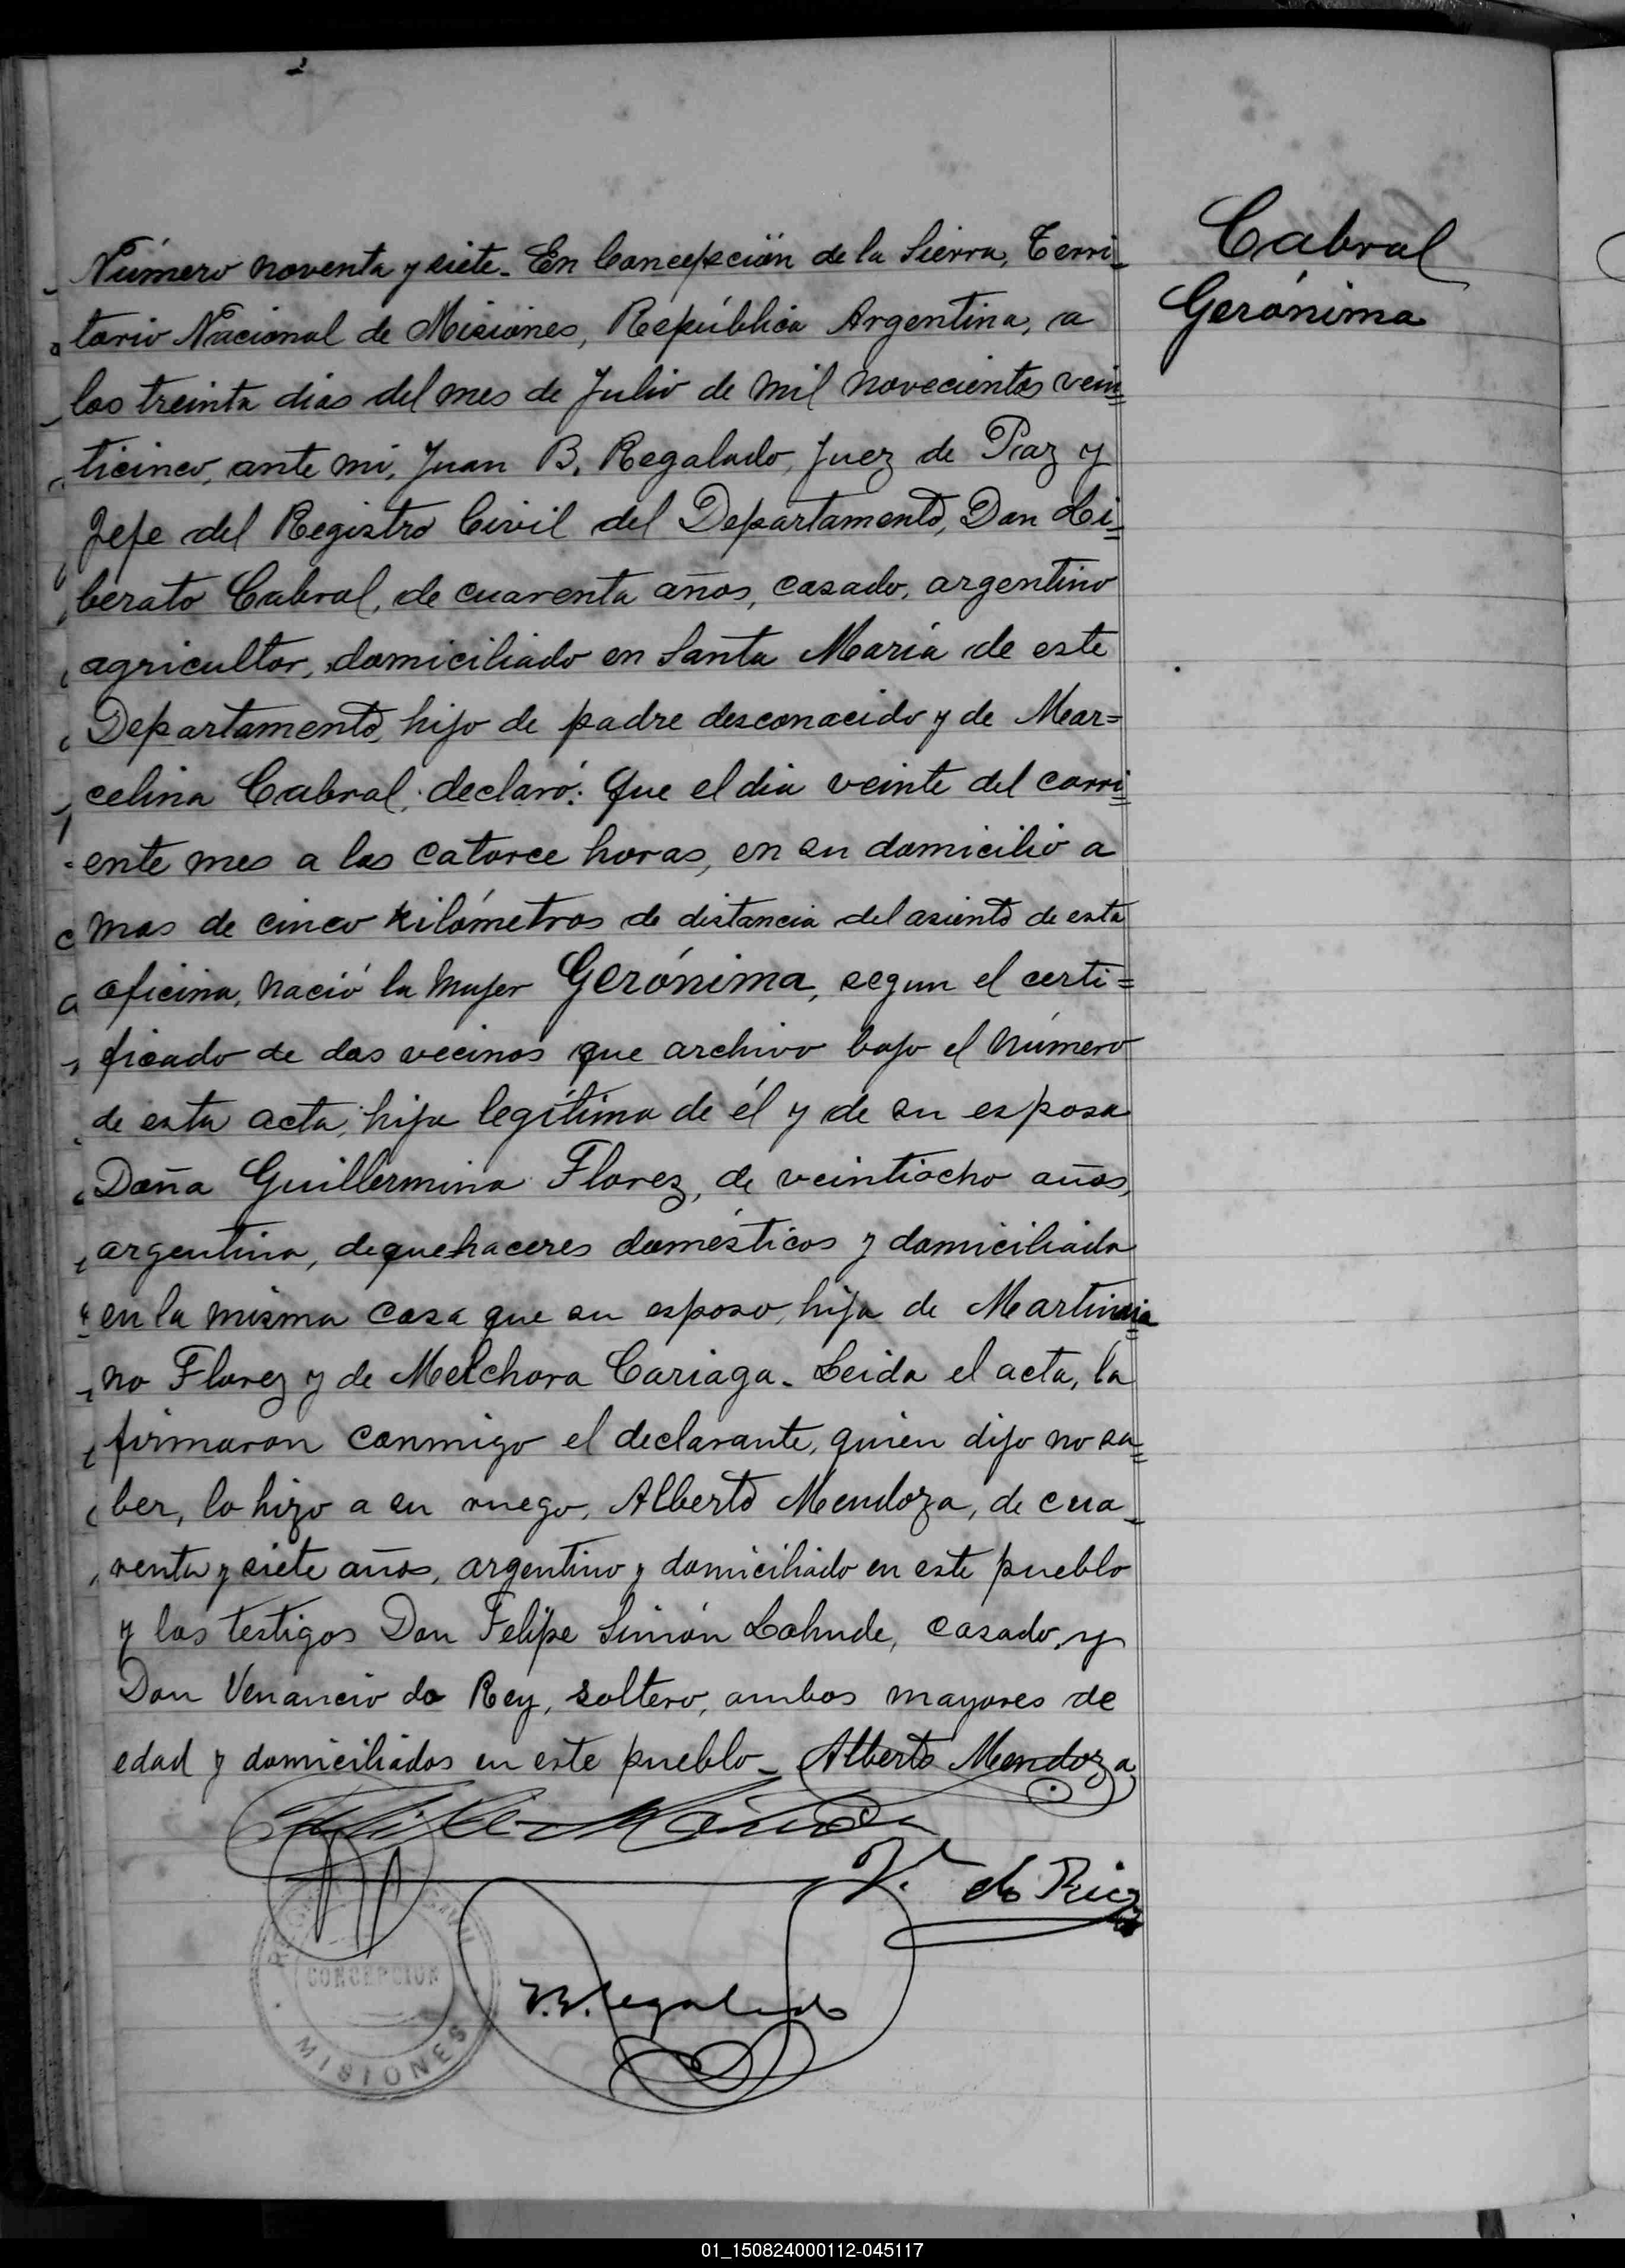 Cabral
Gerónima
Número noventa y siete. En Concepción de la Sierra, Terri-
torio Nacional de Misiones, República Argentina, a
los treinta dias del mes de Julio de mil novecientos vein=
ticinco, ante mi, Juan B. Regalado, Juez de Paz y
Jefe del Registro Civil del Departamento, Don Li=
berato Cabral, de cuarenta años, casado, argentino
agricultor, domiciliado en Santa María de este
Departamento, hijo de padre desconocido y de Mar=
celina Cabral, declaró: Que el dia veinte del corri=
ente mes a las catorce horas, en su domicilio a
mas de cinco kilómetros de distancia del asiento de esta
oficina, nació la mujer Gerónima, segun el certi=
ficado de dos vecinos que archivo bajo el número
de esta acta, hija legítima de él y de su esposa
Doña Guillermina Florez, de veintiocho años,
argentina, de quehaceres domésticos y domiciliada
en la misma casa que su esposo, hija de
no Florez y de Melchora Cariaga. Leida el acta, la
firmaron conmigo el declarante, quien dijo no sa=
ber, lo hizo a su ruego, Alberto Mendoza, de cua-
renta y siete años, argentino y domiciliado en este pueblo
y los testigos Don Felipe Simón Lahude, casado, y
Don Venancio do Rey, soltero, ambos mayores de
edad y domiciliados en este pueblo. Alberto Mendoza
V. do Rey
J. B. Regalado
CONCEPCION
MISIONES
01_150824000112-045117